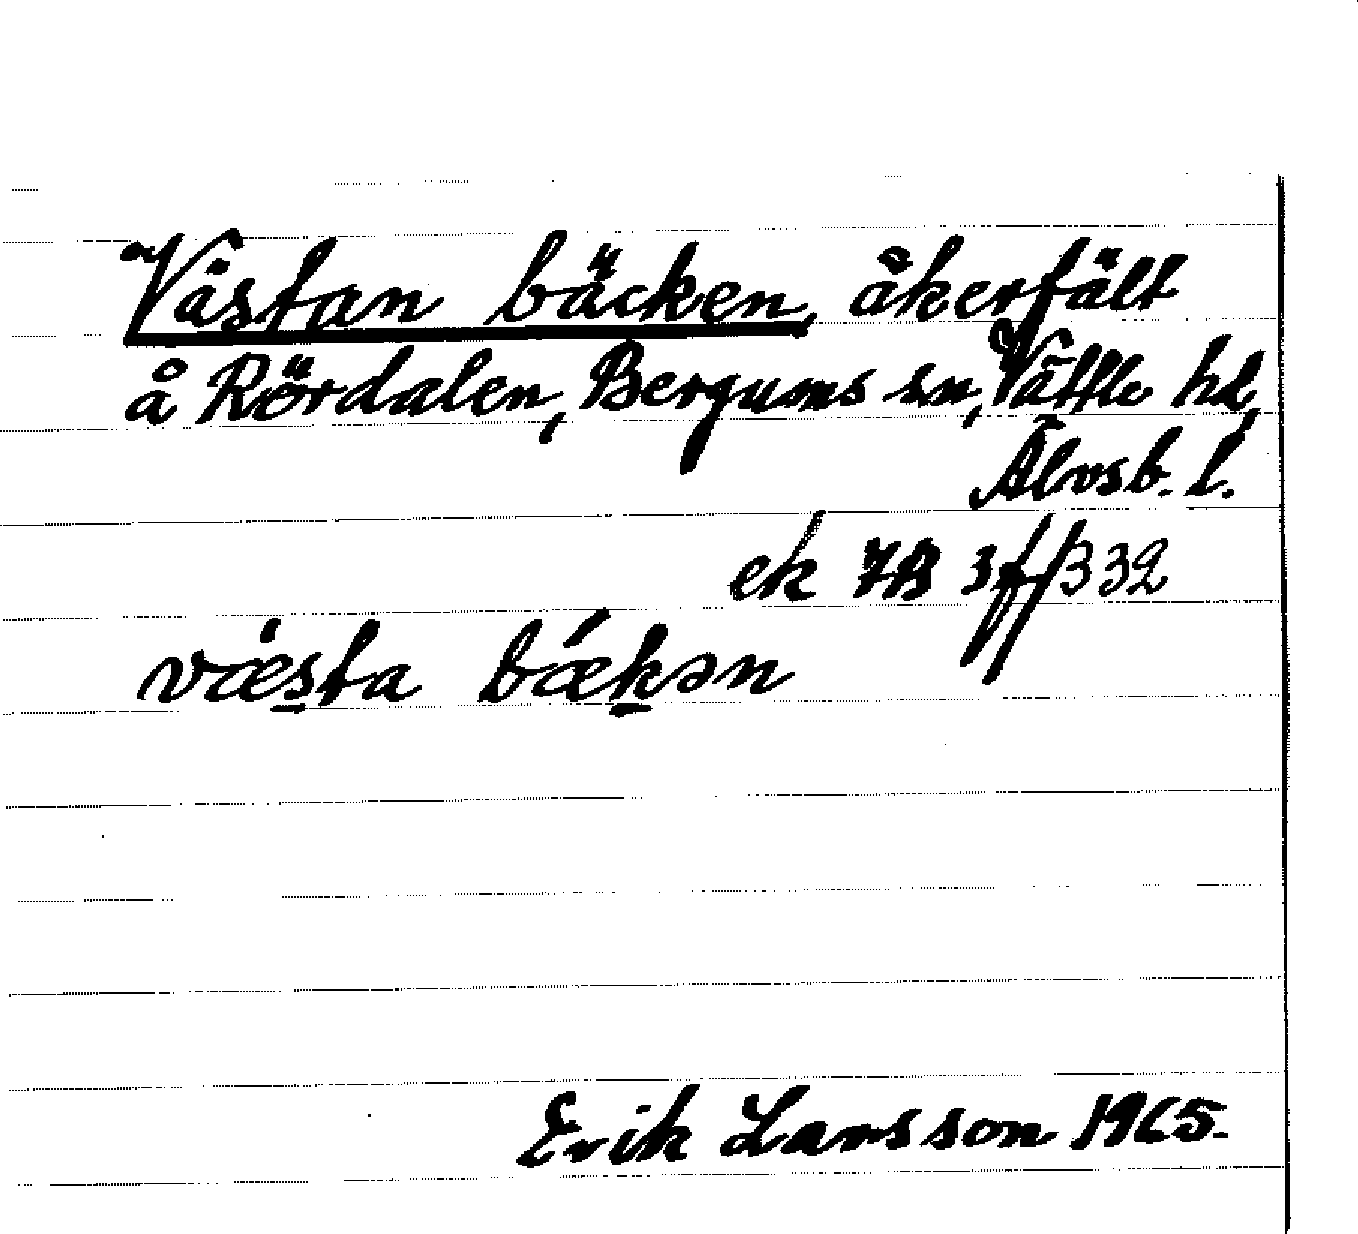 Västan bäcken, åkerfält
å Rördalen, Bergums sn, Vättle hd,
Älvsb. l.
ek 7B 3ff 332
væsta bǽkən
Erik Larsson 1965.